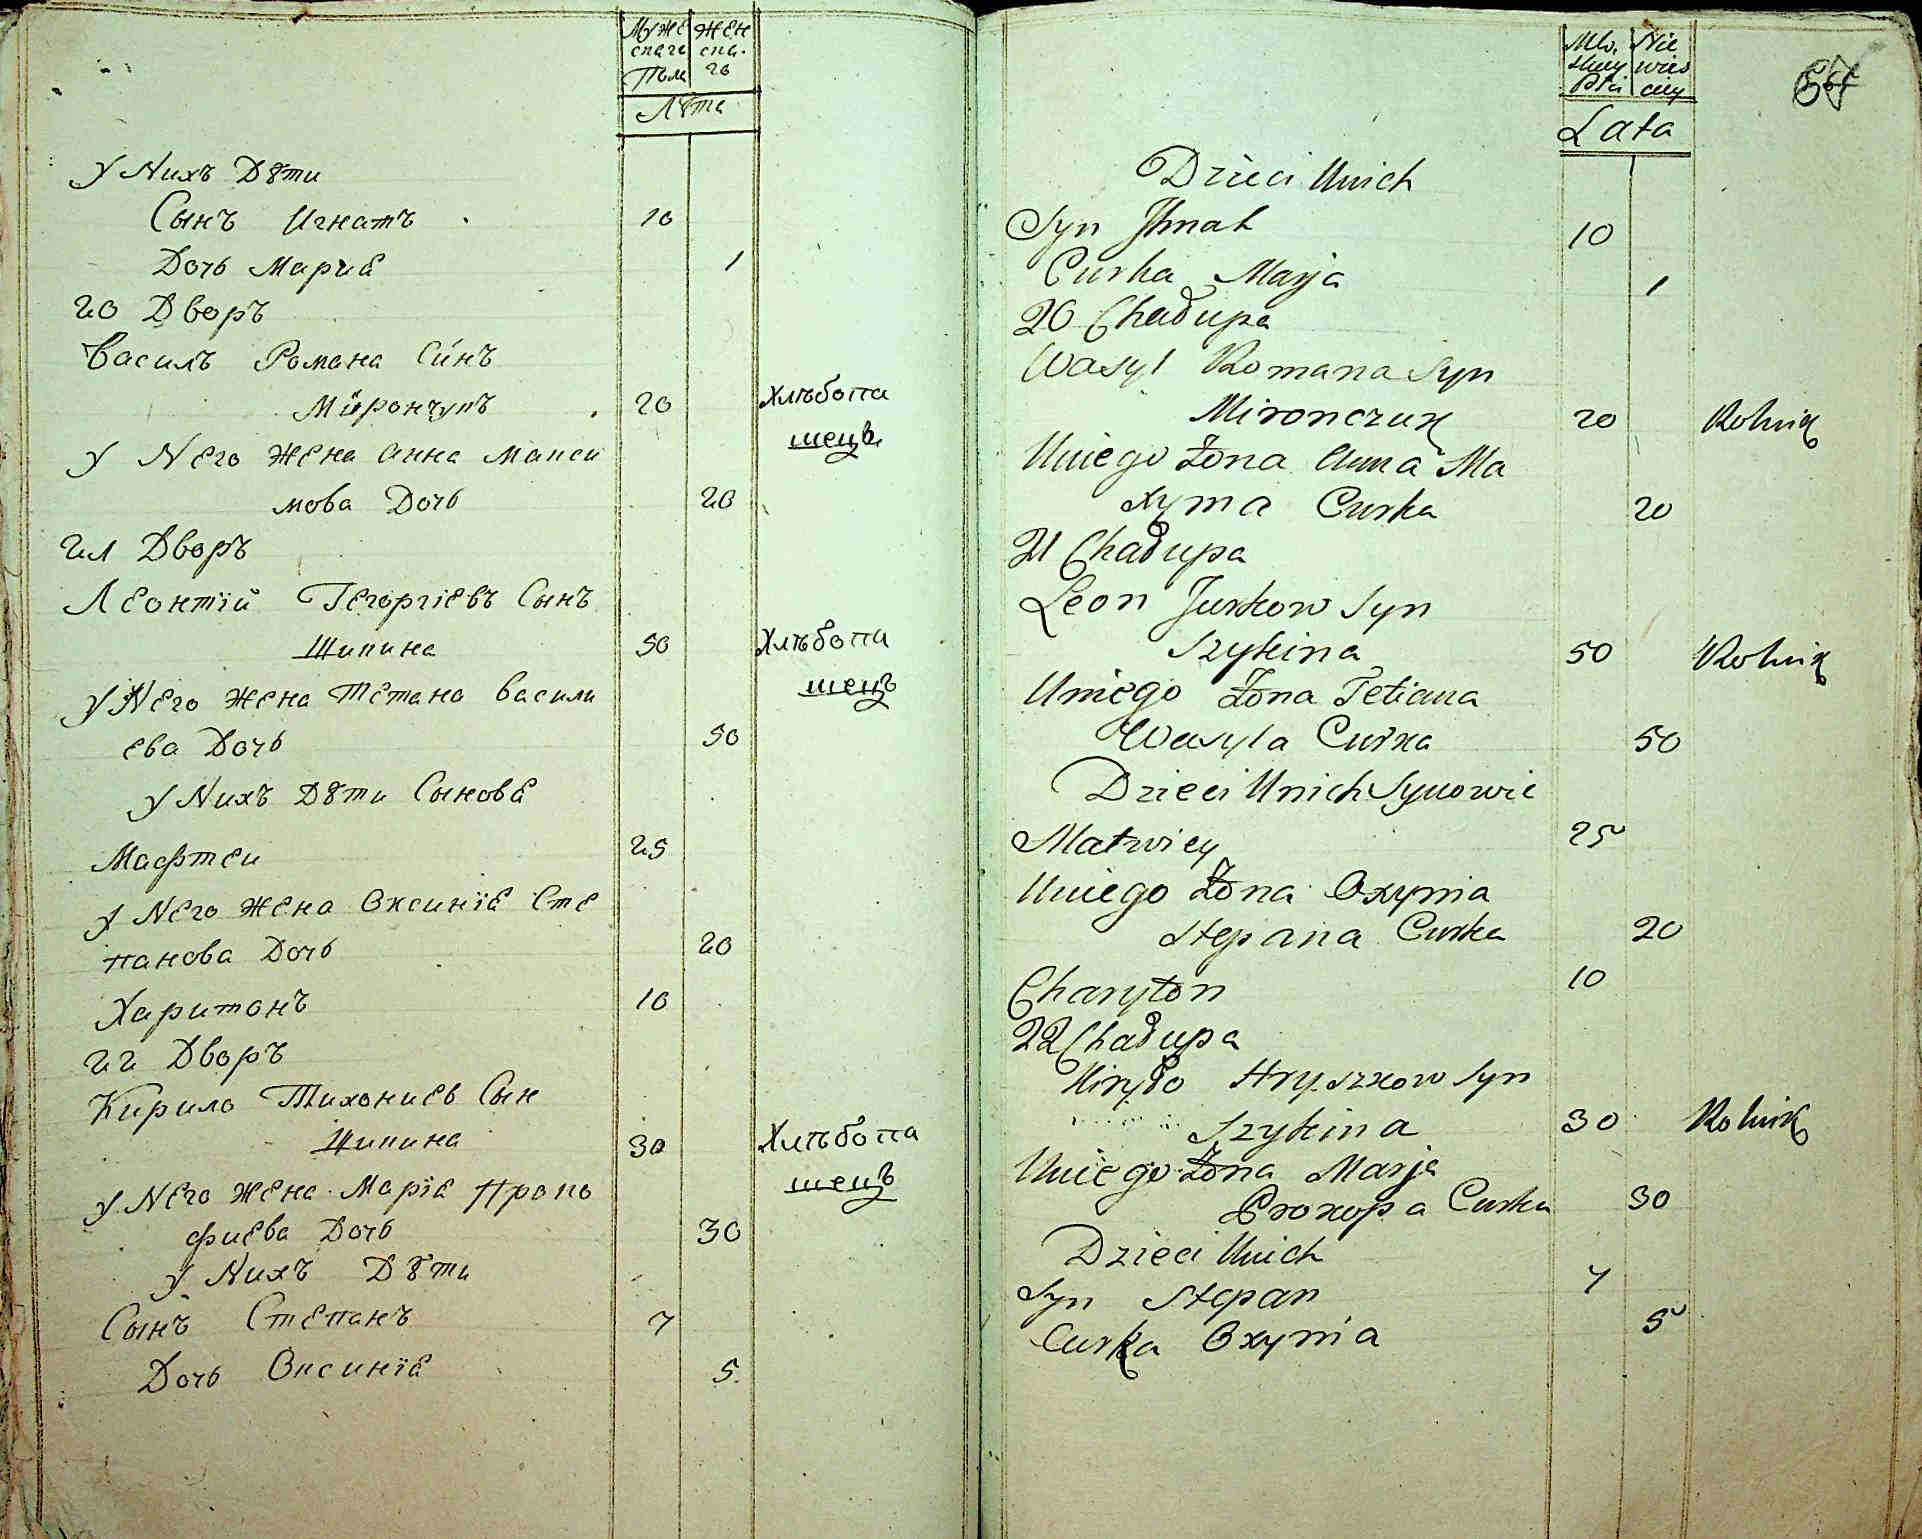 Муже Жен
скаго ска-
Пола го
Лѣта
У Нихъ Дѣти
Сынъ Игнатъ 10
Дочь Мариѣ 1
20 Дворъ
Василъ Романа Синъ
Мирончукъ 20 Хлѣбопа
шецъ
У Него Жена Анна Макси
мова Дочь 20
21 Дворъ
Леонтій Гегоргіевъ Сынъ
Шикина 50 Хлѣбопа
шецъ
У Него Жена Тетяна Васили
ева Дочь 50
У Нихъ Дѣти Сыновѣ
Мафтеи 25
У Него Жена Оксиніѣ Сте
панова Дочь 20
Харитонъ 10
22 Дворъ
Кирило Тихониев Сын
Шикина 30 Хлѣбопа
шецъ
У Него Жена Маріѣ Проко
фиева Дочь 30
У Нихъ Дѣти
Сынъ Степанъ 7
Дочь Оксиніѣ 5
57
Lata
Dzieci Unich
Syn Ihnat 10
Curka Marja 1
20 Chałupa
Wasyl Romana Syn
Mironczuk 20 Rolnik
Uniego Żona Anna Ma
xyma Curka 20
21 Chałupa
Leon Jurkow Syn
Szykina 50 Rolnik
Uniego Żona Tetiana
Wasyla Curka 50
Dzieci Unich Synowie
Matwiey 25
Uniego Żona Oxynia
Stepana Curka 20
Charyton 10
22 Chałupa
Kiryło Hryszkow Syn
Szykina 30 Rolnik
Uniego Żona Marja
Prokopa Curka 30
Dzieci Unich
Syn Stepan 7
Curka Oxynia 5